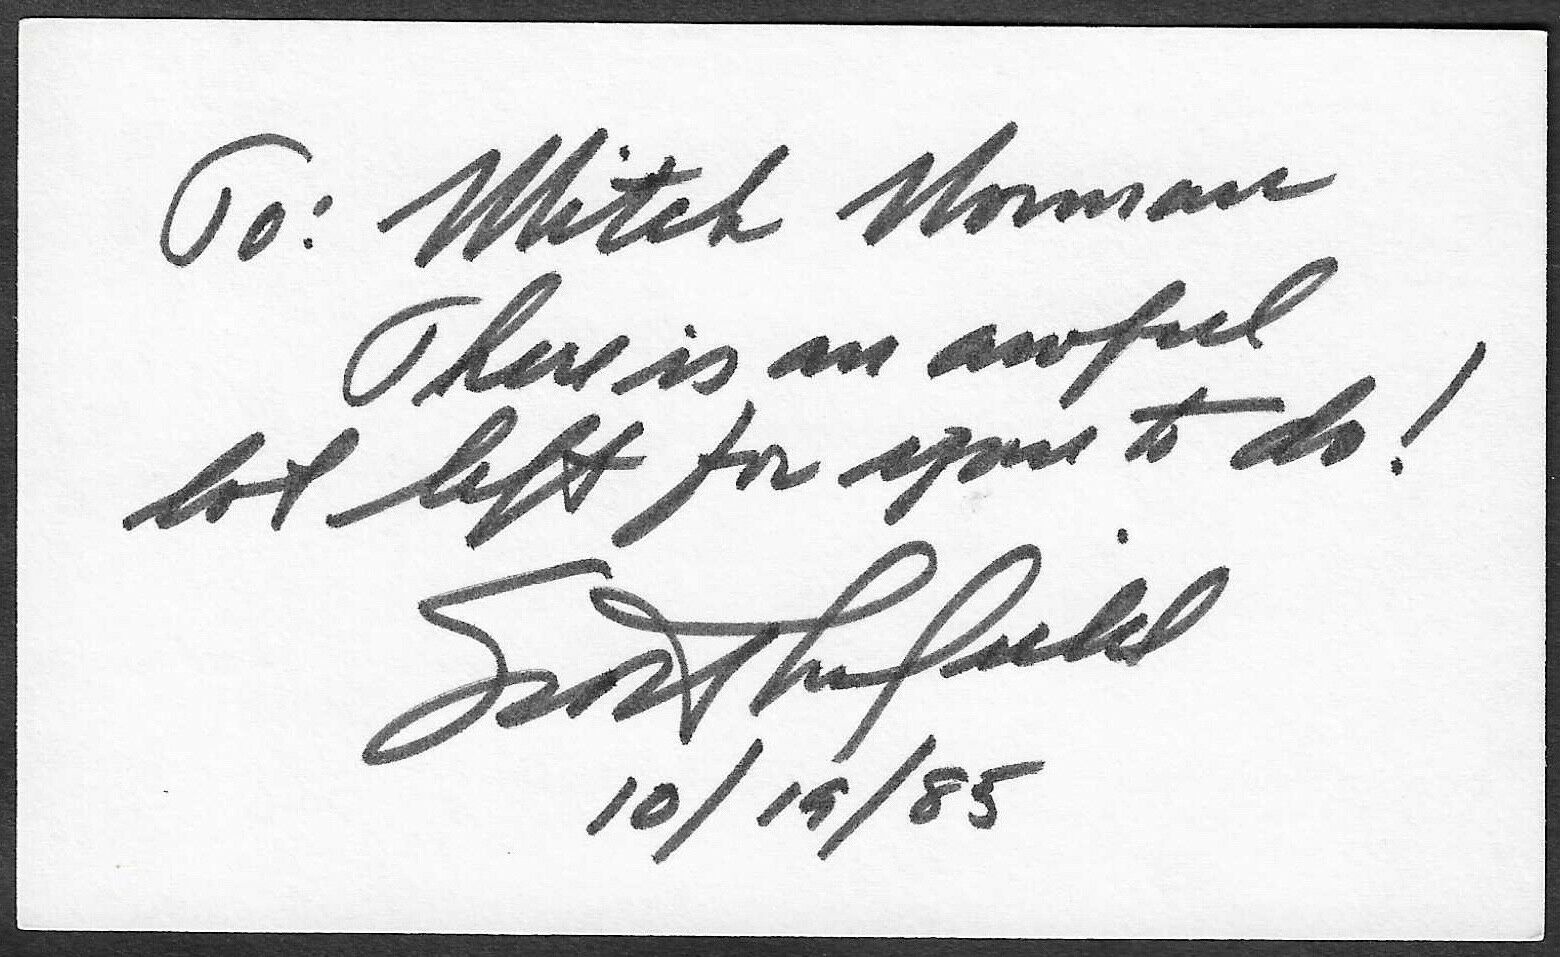 To: Mitch Norman
There is an awful
lot left for you to do!
Scott Crossfield
10/19/85